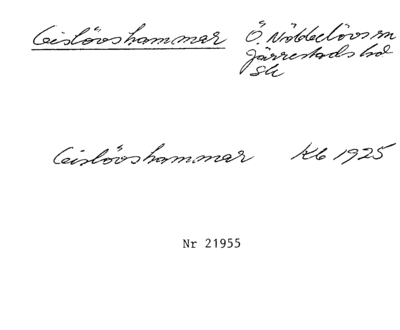 Gislövshammar Ö. Nöbbelövs sn
Järrestads hd
Sk
Gislövshammar Kb 1925
Nr 21955